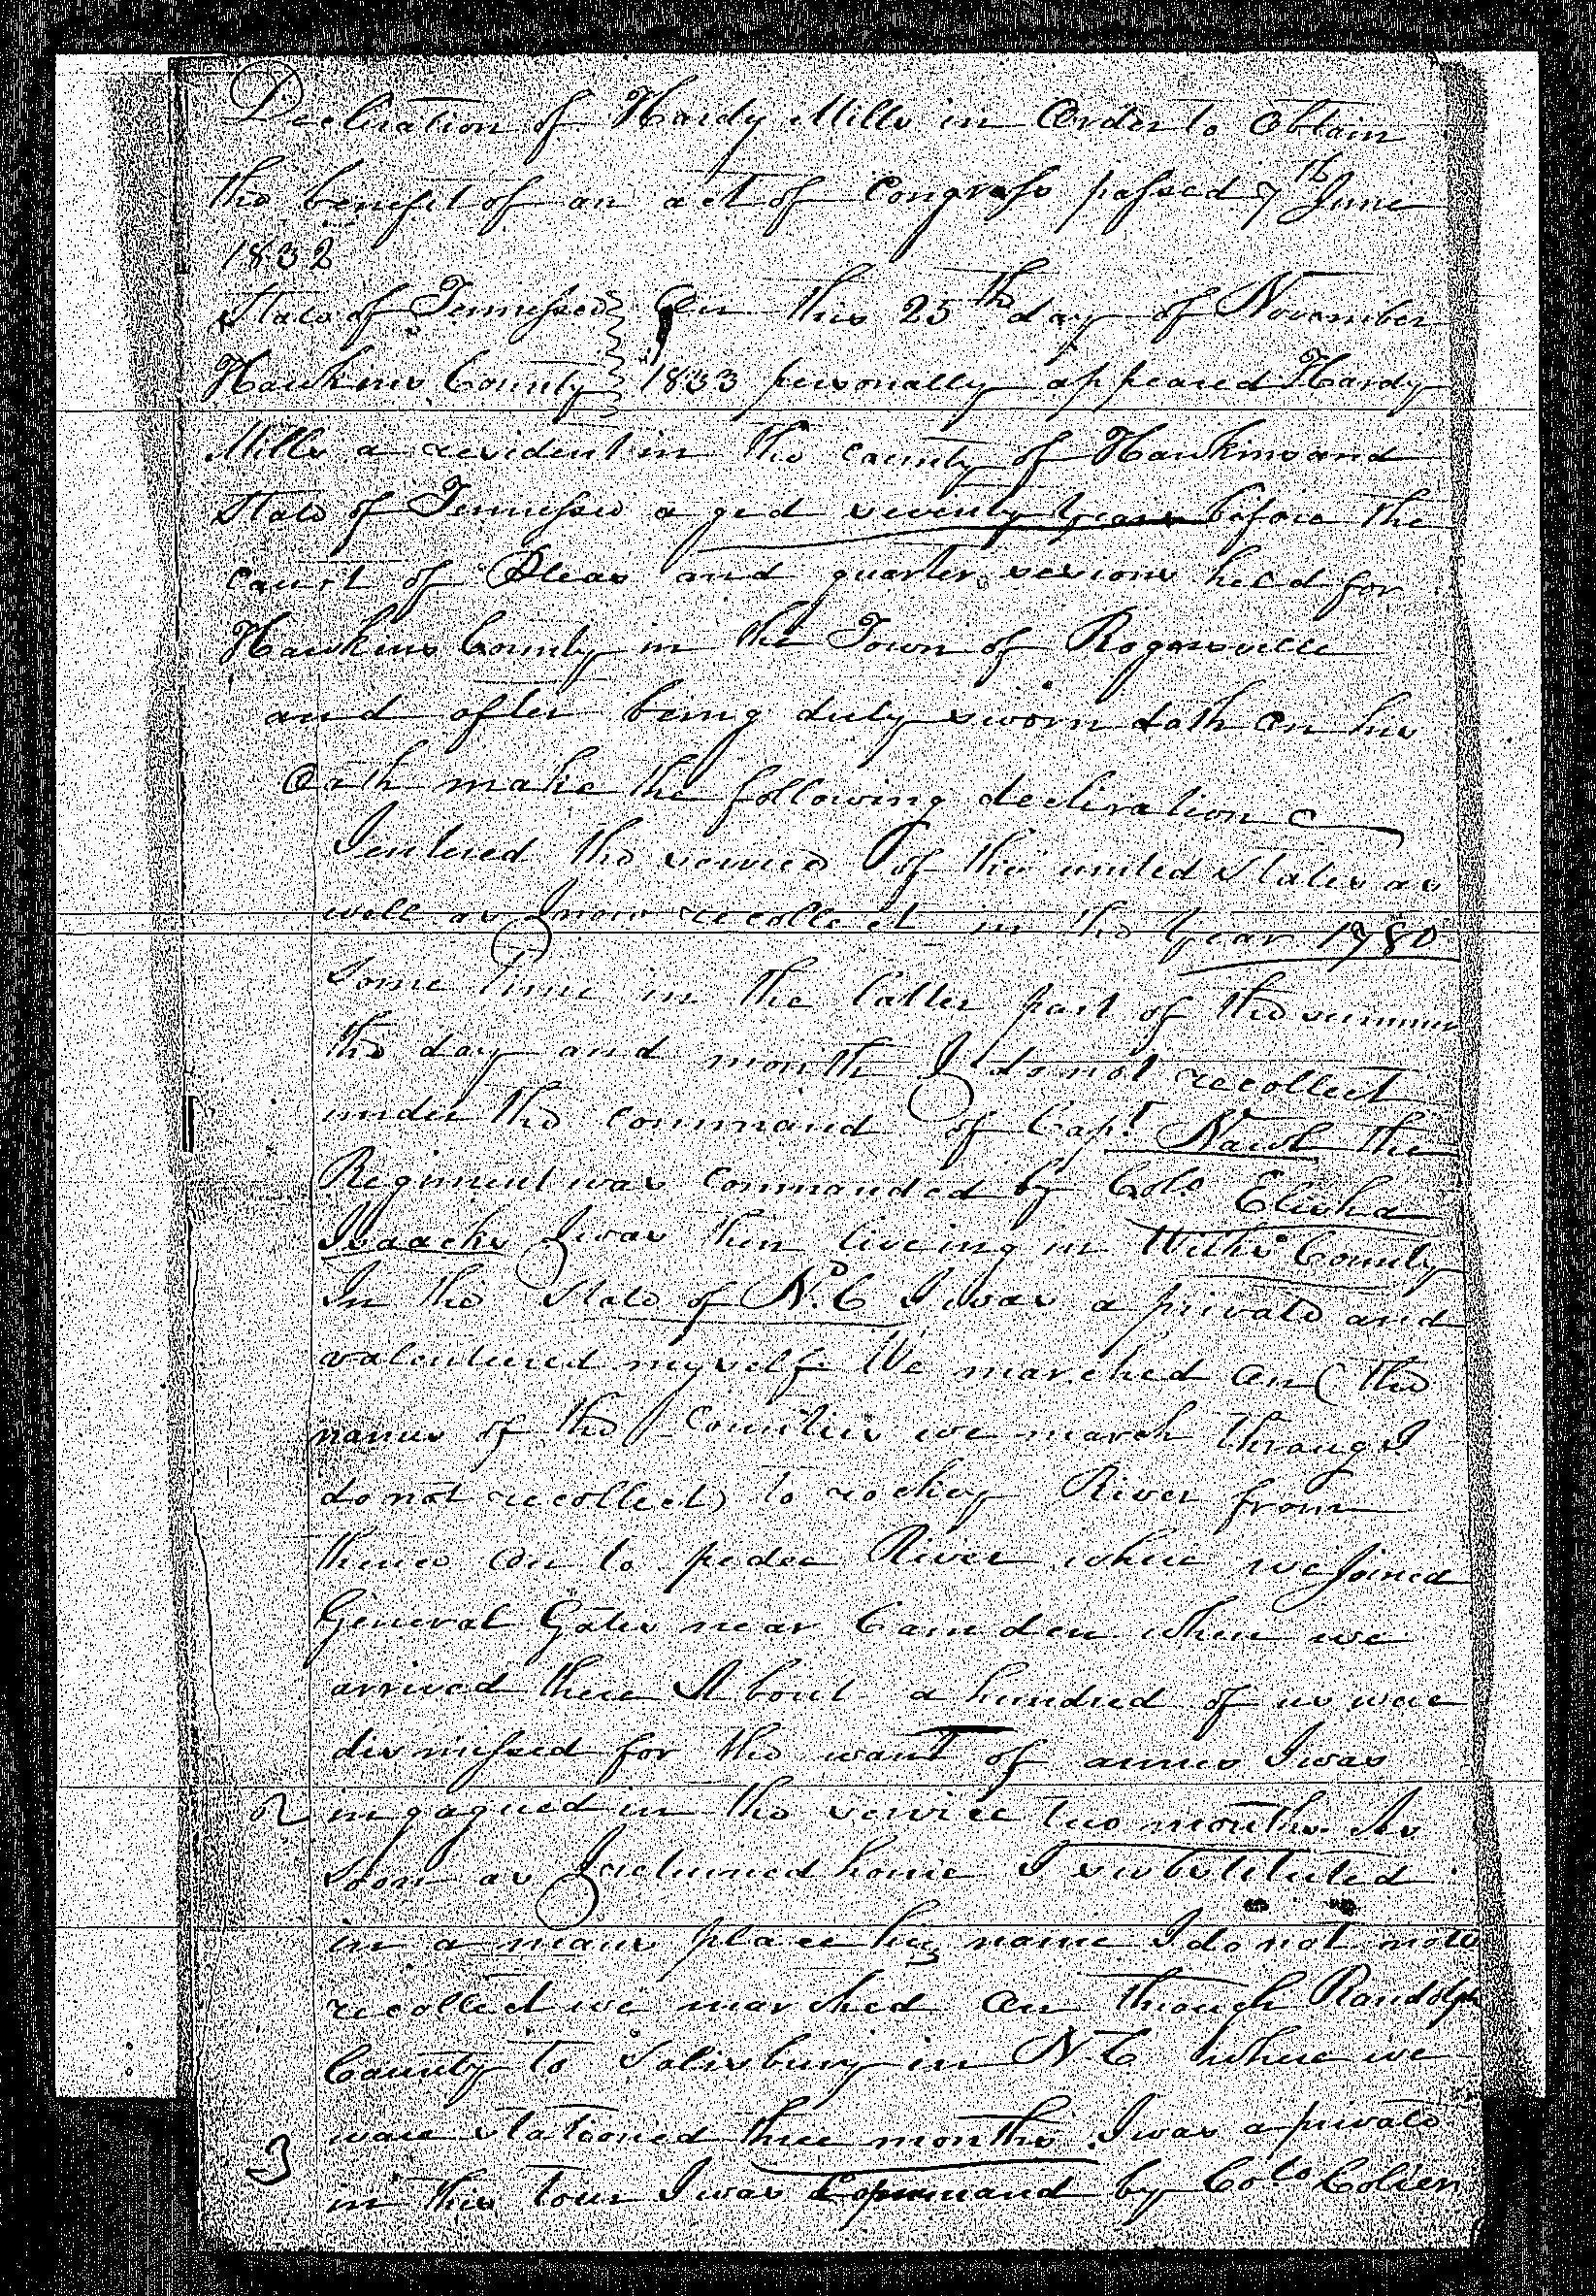 Decliration of Hardy Mills in Order to Obtain
the benefit of an act of Congress passed 7th June
1832
State of Tennessee On this 25th day of November
Hawkins County 1833 personally appeared Hardy
Mills a resident in the county of Hawkins and
State of Tennessee aged seventy years before the
court of Pleas and quarter sessions held for
Hawkins County in the Town of Rogersville
and after being duly sworn doth on his
Oath make the following decliration
I entered the service of the united States as
well as I now recollect in the year 1780
some time in the latter part of the summer
the day and month I do not recollect
under the command of Capt Nawl the
Regiment was commanded by Colo Elisha
Isaacks I was then liveing in Wilks County
In the State of N.C I was a private and
valentured myself We marched on (the
names of the Counties we march throug I
do not recollect) to rockey River from
thence on to pedee River where we Joined
General Gates near Camden when we
arrived there About a hundred of us ware
dismissed for the want of armes I was
2 ingagued in the service two months. As
soon as I returned home I substituted
in a mans place his name I do not now
recollect we marched on through Randolph
County to Salisbury in N.C where we
3 ware stationed three months. I was a private
in this tour I was Command by Colo